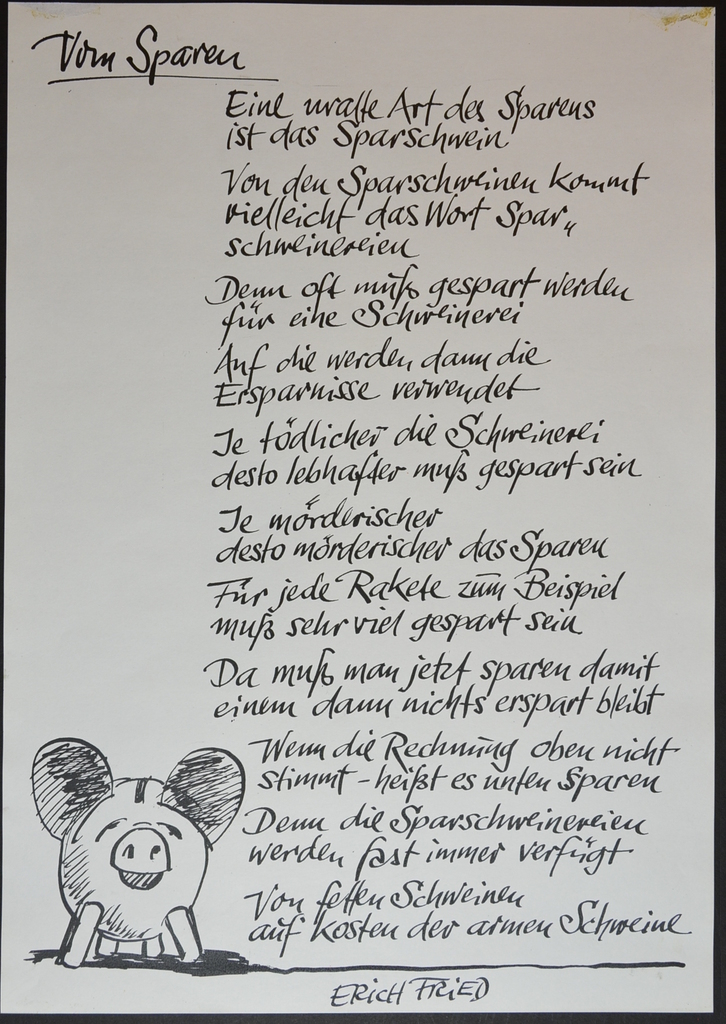 Vom Sparen
Eine uralte Art des Sparens
ist das Sparschwein
Von den Sparschweinen kommt
vielleicht das Wort Spar„
schweinereien
Denn oft muß gespart werden
für eine Schweinerei
Auf die werden dann die
Ersparnisse verwendet
Je tödlicher die Schweinerei
desto lebhafter muß gespart sein
Je mörderischer
desto mörderischer das Sparen
Für jede Rakete zum Beispiel
muß sehr viel gespart sein
Da muß man jetzt sparen damit
einem dann nichts erspart bleibt
Wenn die Rechnung oben nicht
stimmt – heißt es unten sparen
Denn die Sparschweinereien
werden fast immer verfügt
Von fetten Schweinen
auf Kosten der armen Schweine
ERICH FRIED